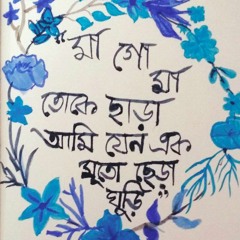 “মা গো
মা
তোকে ছাড়া
আমি যেন এক
সুতো ছেড়া
ঘুড়ি”